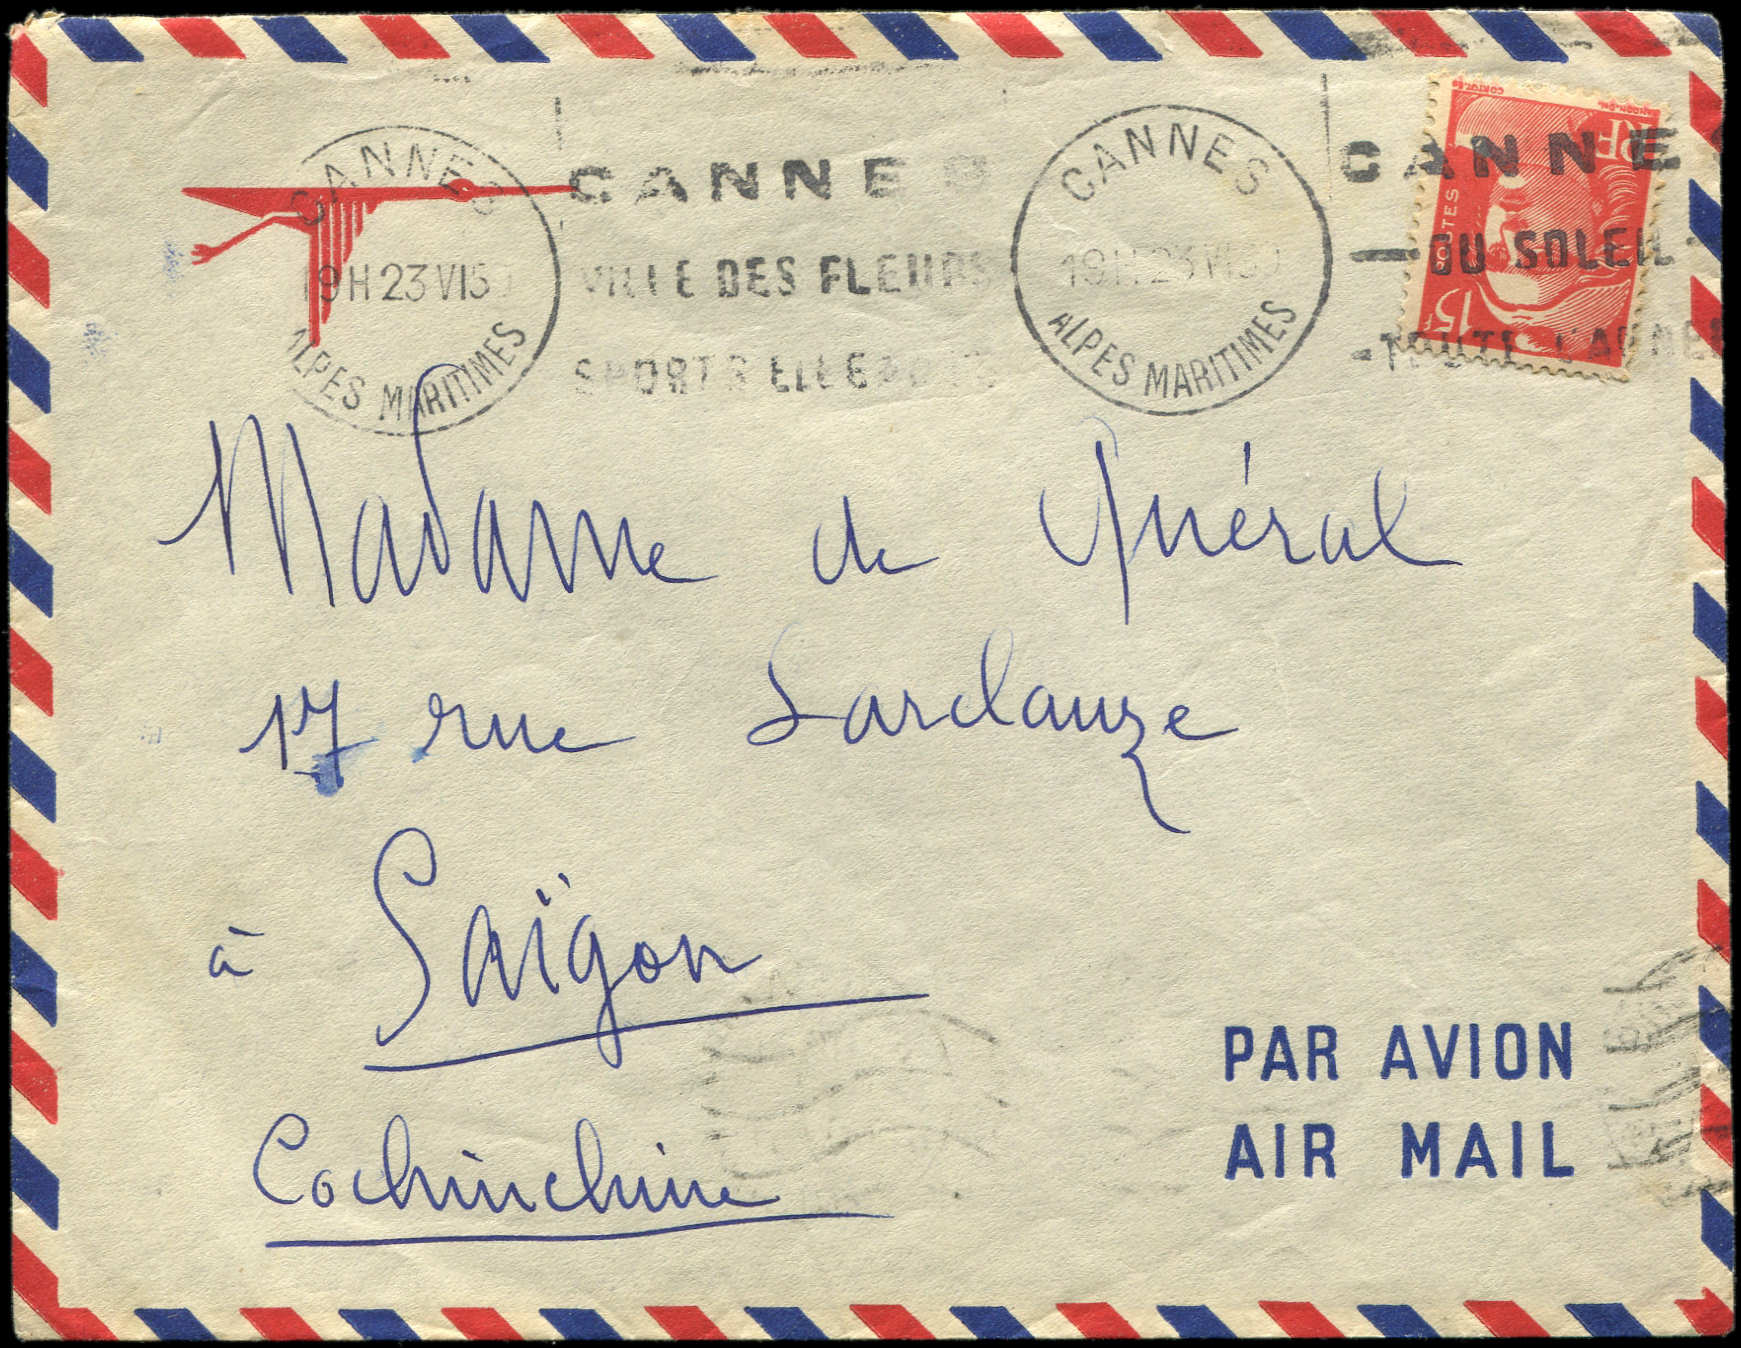 CANNES
19H 23 VI 5
ALPES MARITIMES
CANNES
VILLE DES FLEURS
SPORTS ELEGANCE
CANNES
19H 23 VI 50
ALPES MARITIMES
CANNE
DU SOLEIL
TOUTE L'ANNEE
RF
POSTES
15F
Madame de Quéral
17 rue Larclauze
à Saïgon
Cochinchine
PAR AVION
AIR MAIL